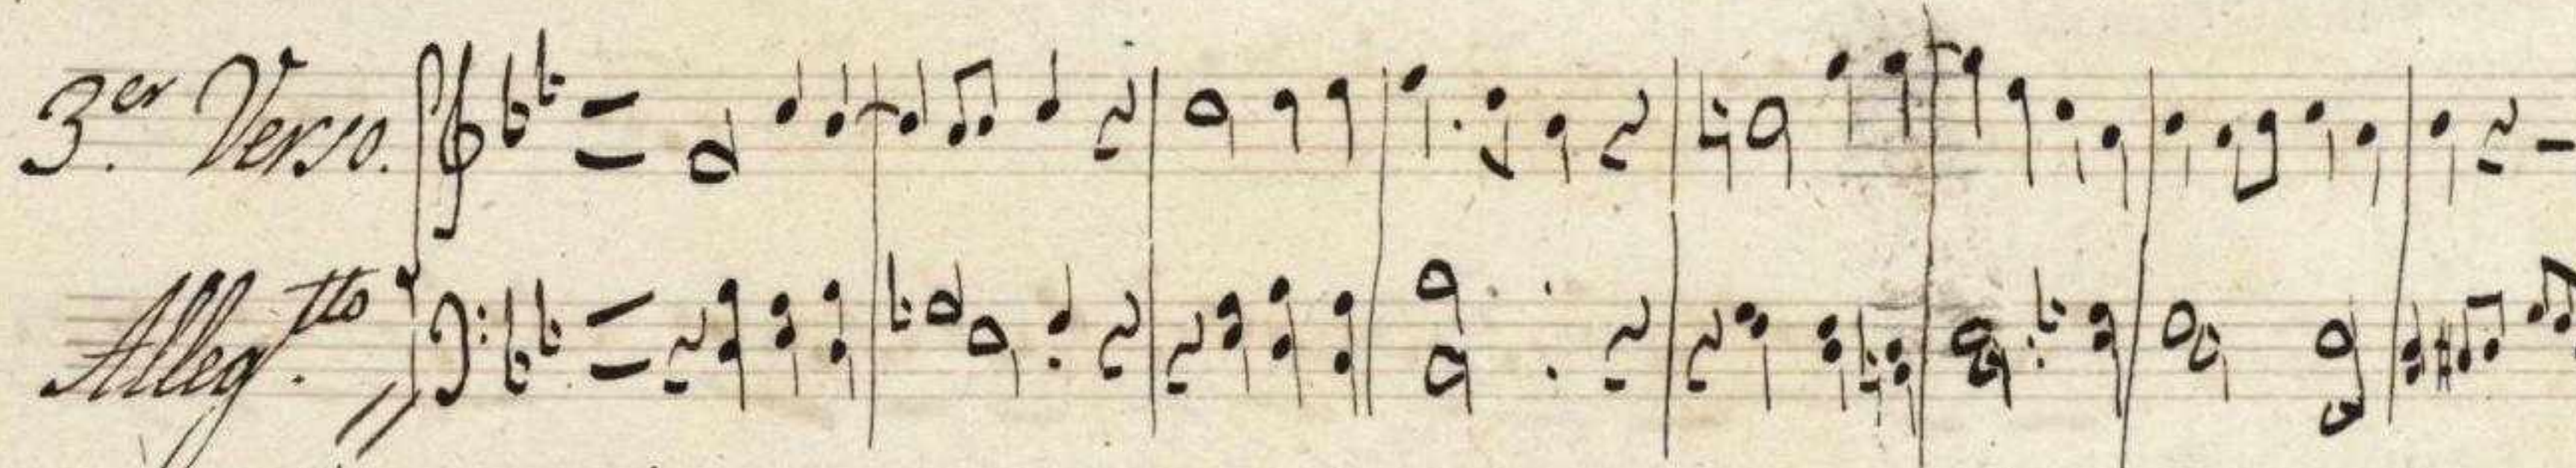 3.er Verso.
Alleg.tto